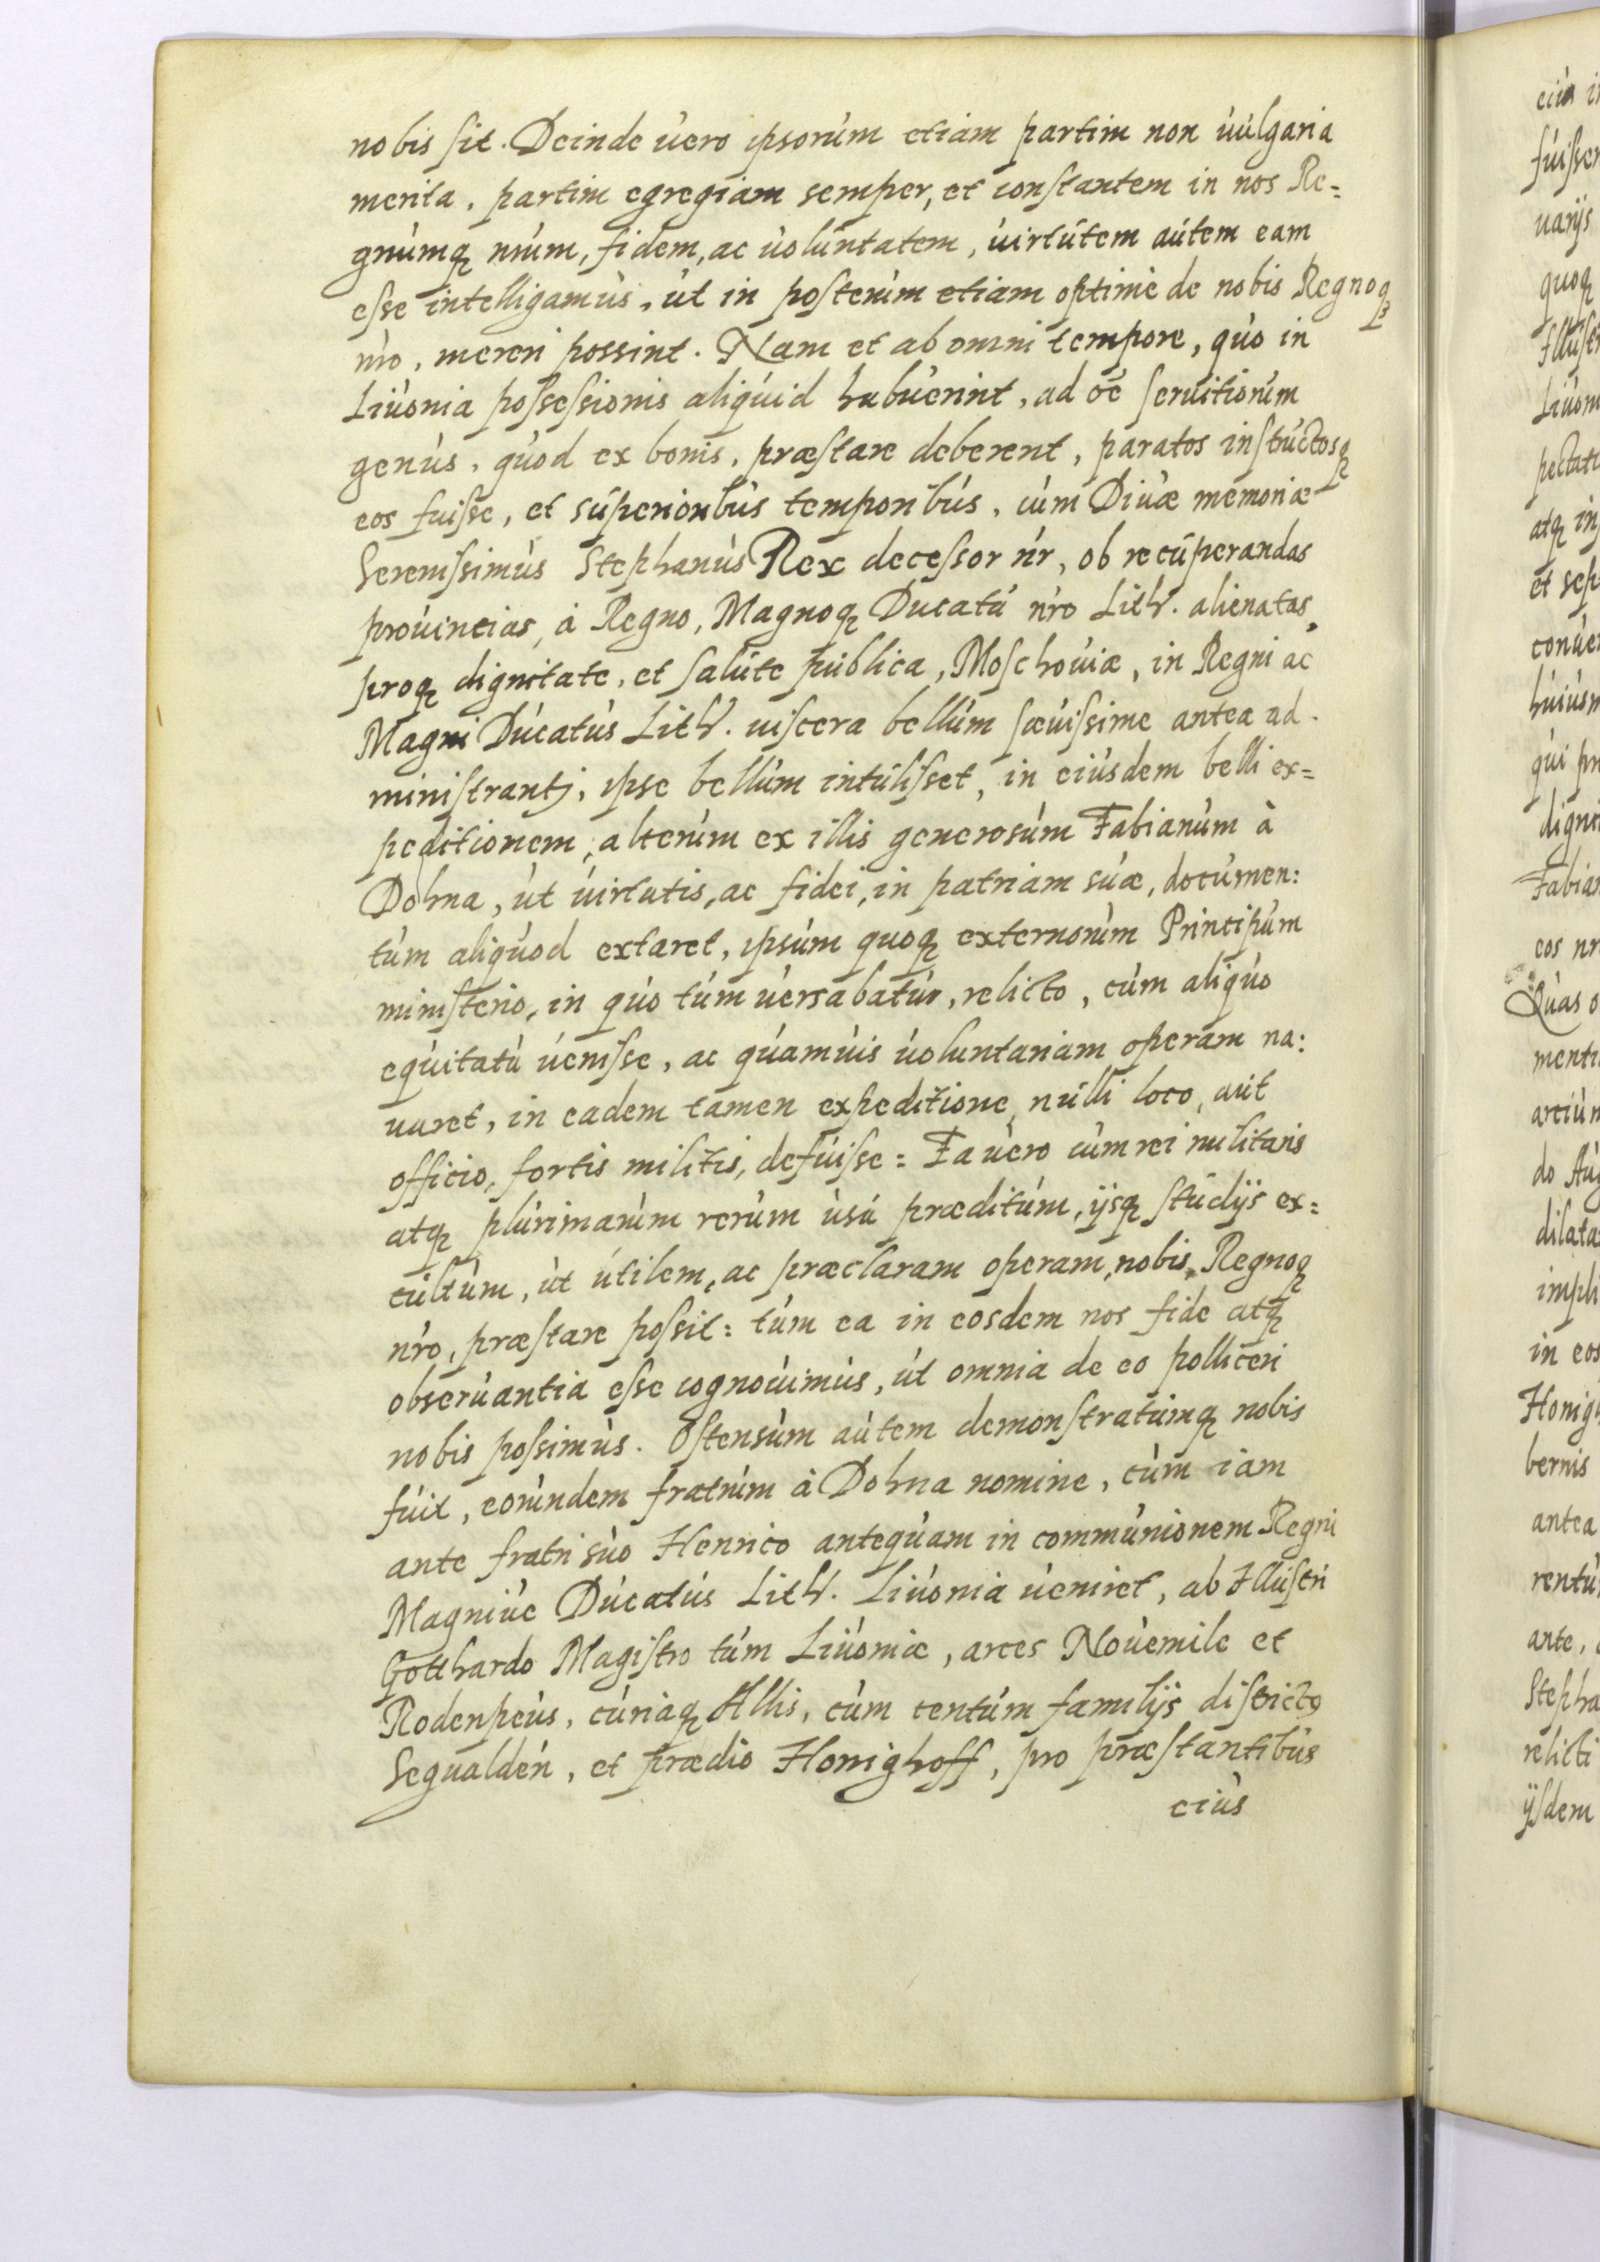 nobis sit. Deinde uero ipsorum etiam partim non uulgaria
merita, partim egregiam semper, et constantem in nos Re=
gnumq nrum, fidem, ac uoluntatem, uirtutem autem eam
esse intelligamus, ut in posterum etiam optime de nobis Regnoq
nro, mereri possint. Nam et ab omni tempore, quo in
Liuonia possessionis aliquid habuerint, ad oe seruitiorum
genus, quod ex bonis, præstare deberent, paratos instructosq
eos fuisse, et superioribus temporibus, cum Diuæ memoriæ
Serenissimus Stephanus Rex decessor nr, ob recuperandas
prouincias, à Regno, Magnoq Ducatu nro Lith. alienatas,
proq dignitate, et salute publica, Moschouiæ, in Regni ac
Magni Ducatus Lith. uiscera bellum sæuissime antea ad-
ministrantj, ipse bellum intulisset, in eiusdem belli ex=
peditionem, alterum ex illis generosum Fabianum à
Dohna, ut uirtutis, ac fidei, in patriam suæ, documen:
tum aliquod extaret, ipsum quoq externorum Principum
ministerio, in quo tum uersabatur, relicto, cum aliquo
equitatu uenisse, ac quamuis uoluntariam operam na:
uaret, in eadem tamen expeditione, nulli loco, aut
officio, fortis militis, defuisse = Ea uero cum rei militaris
atq plurimarum rerum usu præditum, ijsq studijs ex=
cultum, ut utilem, ac præclaram operam, nobis, Regnoq
nro, præstare possit: tum ea in eosdem nos fide atq
obseruantia esse cognouimus, ut omnia de eo polliceri
nobis possimus. Ostensum autem demonstratumq nobis
fuit, eorundem fratrum à Dohna nomine, cum iam
ante fratri suo Henrico antequam in communionem Regni
Magniue Ducatus Lith. Liuonia ueniret, ab Illustri
Gotthardo Magistro tum Liuoniæ, arces Nouemile et
Rodenpeus, curiaq Allis, cum centum familijs districto
Segualden, et prædio Honighoff, pro præstantibus
eius